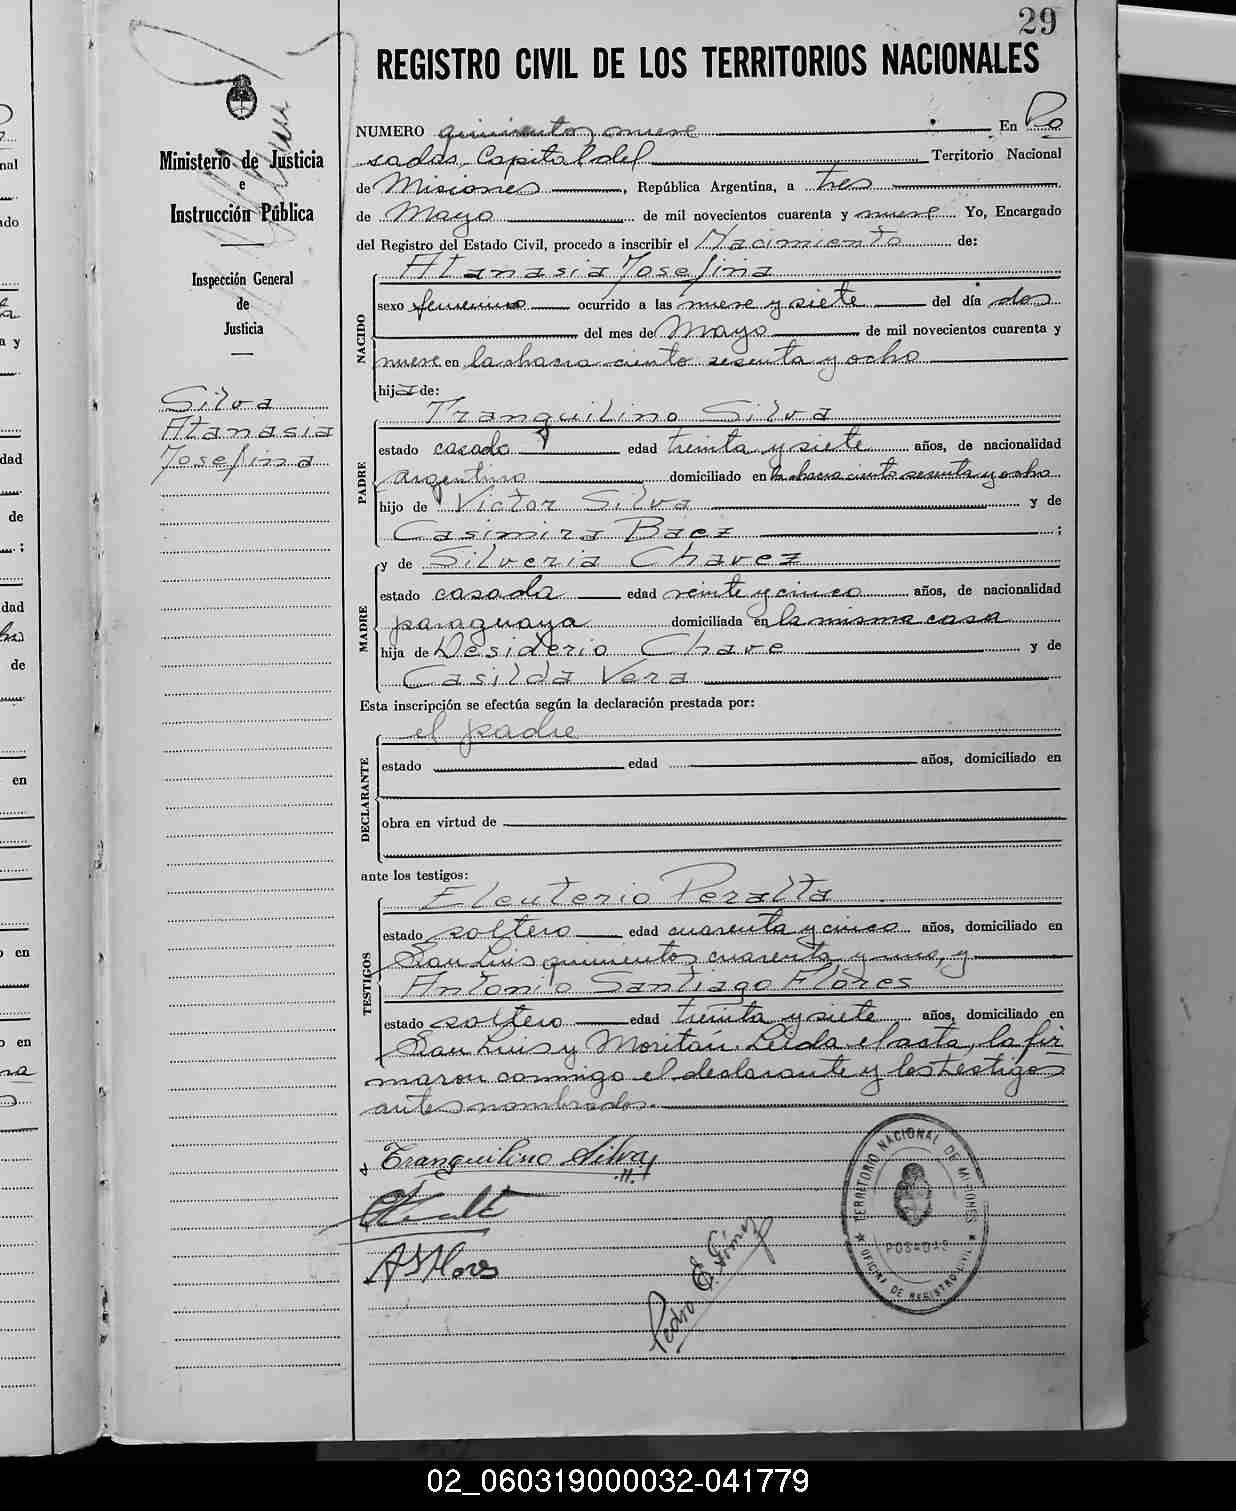 29
REGISTRO CIVIL DE LOS TERRITORIOS NACIONALES
Ministerio de Justicia
e
Instrucción Pública
Inspección General
de
Justicia
Silva
Atanasia
Josefina
NUMERO quinientos nueve En Po
sadas, Capital del Territorio Nacional
de Misiones, República Argentina, a tres
de Mayo de mil novecientos cuarenta y nueve Yo, Encargado
del Registro del Estado Civil, procedo a inscribir el Nacimiento de:
NACIDO
Atanasia Josefina
sexo femenino ocurrido a las nueve y siete del día dos
del mes de Mayo de mil novecientos cuarenta y
nueve en la chacra ciento sesenta y ocho
hija de:
PADRE
Tranquilino Silva
estado casado edad treinta y siete años, de nacionalidad
argentino domiciliado en la chacra ciento sesenta y ocho
hijo de Victor Silva y de
Casimira Baez ;
MADRE
y de Silveria Chavez
estado casada edad veinte y cinco años, de nacionalidad
paraguaya domiciliada en la misma casa
hija de Desiderio Chave y de
Casilda Vera
Esta inscripción se efectúa según la declaración prestada por:
DECLARANTE
el padre
estado edad años, domiciliado en
obra en virtud de
ante los testigos:
TESTIGOS
Eleuterio Peralta
estado soltero edad cuarenta y cinco años, domiciliado en
San Luis quinientos cuarenta y uno, y
Antonio Santiago Flores
estado soltero edad treinta y siete años, domiciliado en
San Luis y Moritán. Leida el acta, la fir
maron conmigo el declarante y los testigos
antes nombrados.
Tranquilino Silva
A S Flores
Pedro E. Gimenez
TERRITORIO NACIONAL DE MISIONES
POSADAS
OFICINA DE REGISTRO CIVIL
02_060319000032-041779